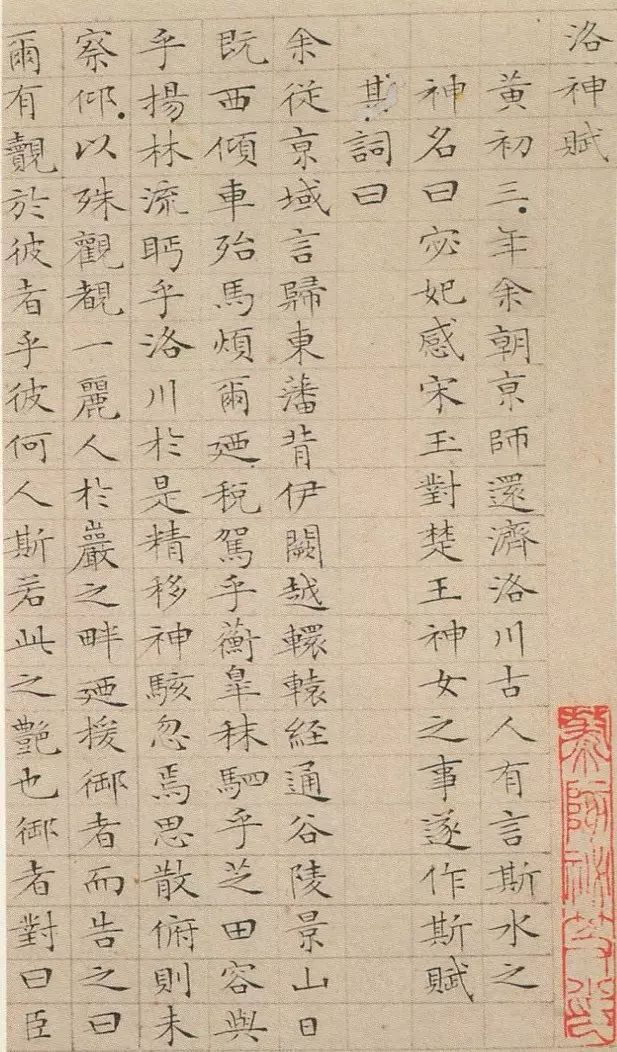 洛神賦
黃初三年余朝京師還濟洛川古人有言斯水之
神名曰宓妃感宋玉對楚王神女之事遂作斯賦
其詞曰
余從京域言歸東藩背伊闕越轘轅經通谷陵景山日
既西傾車殆馬煩爾廼稅駕乎蘅皐秣駟乎芝田容與
乎揚林流眄乎洛川於是精移神駭忽焉思散俯則未
察仰以殊觀覩一麗人於巖之畔廼援御者而告之曰
爾有覿於彼者乎彼何人斯若此之艷也御者對曰臣